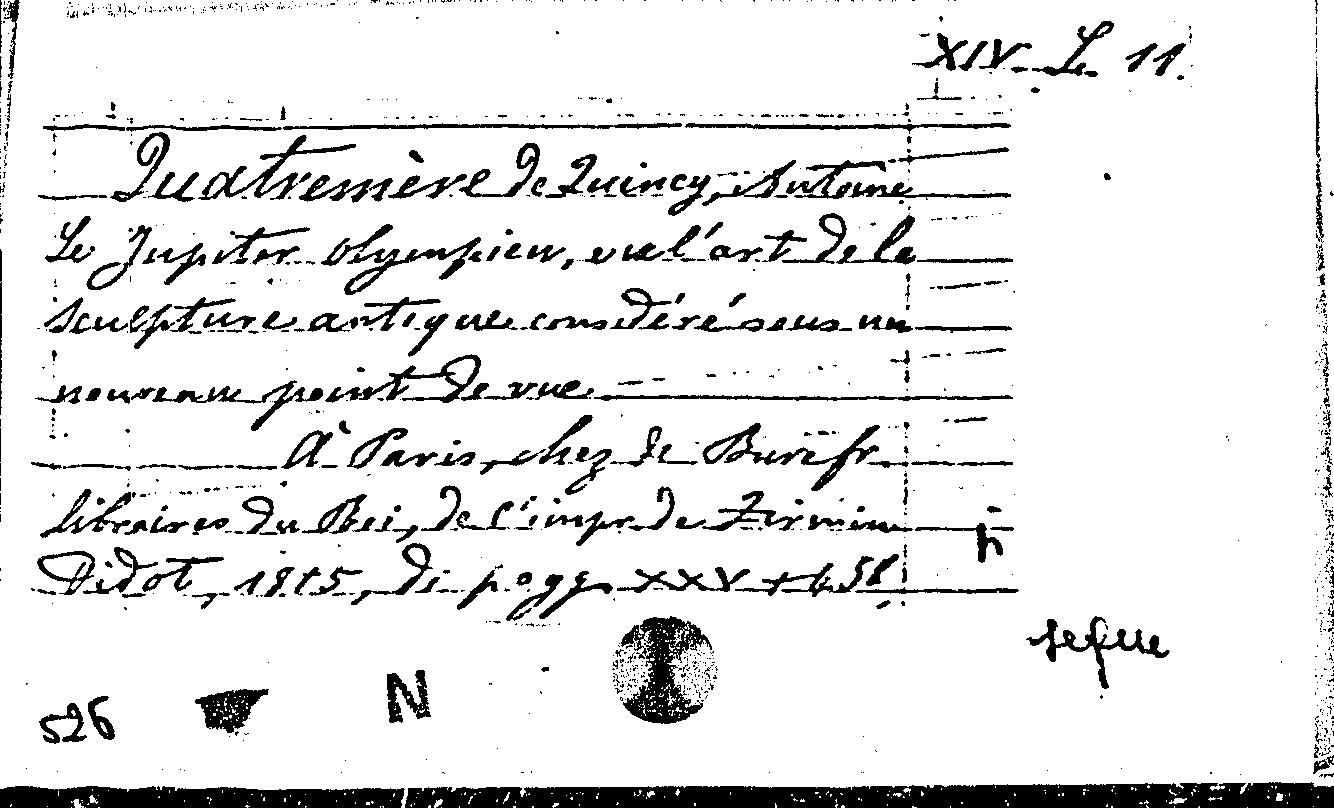 XIV. L. 11.
Quatremère de Quincy, Antoine
Le Jupiter olympien, ou l'art de la
sculpture antique considéré sous un
nouveau point de vue.
À Paris, chez de Bure fr.
libraires du Roi, de l'impr. de Firmin
Didot, 1815, di pagg. XXV + 458.
segue
526 N